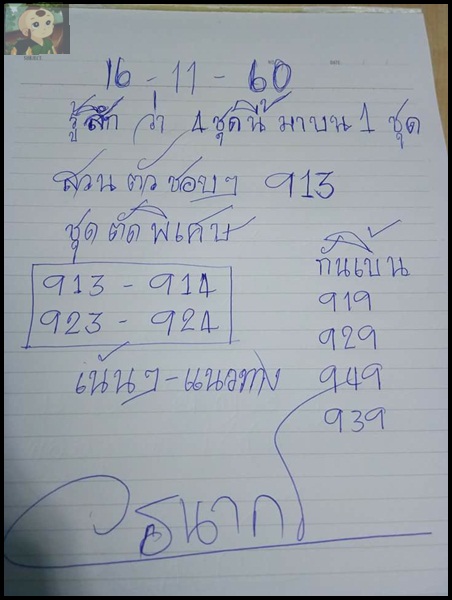 16 - 11 - 60
รู้สึก ว่า 4 ชุดนี้ มาบน 1 ชุด
สวน ตัว ชอบๆ 913
ชุด ตัด พิเศษ
913 - 914
923 - 924
เน้นๆ - แนวทาง
กันเบิ้น
919
929
949
939